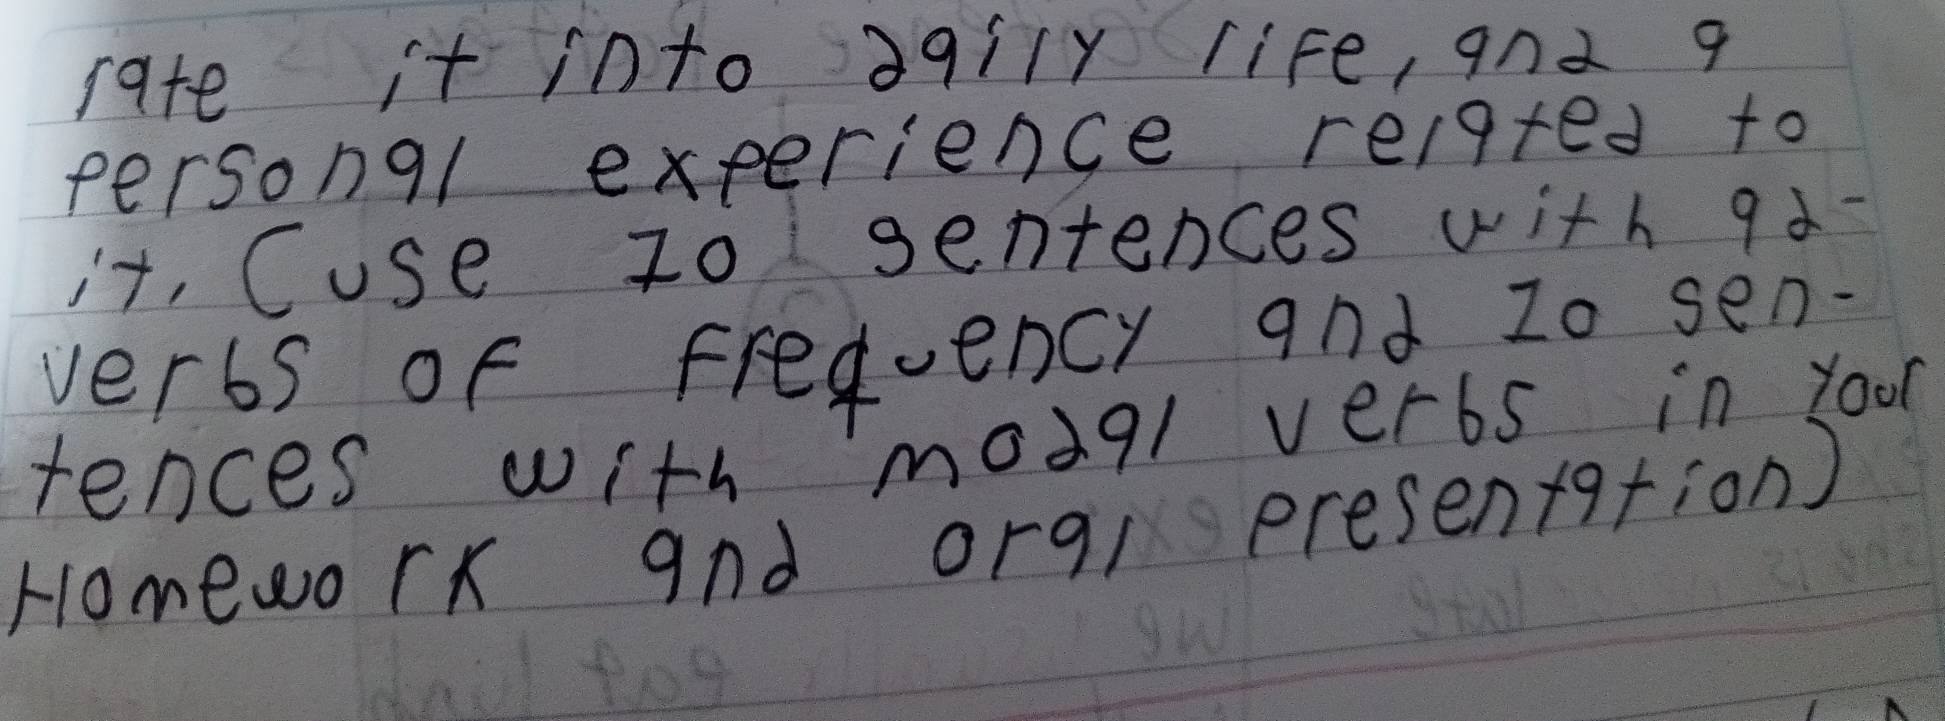 rate it into daily life, and a
personal experience related to
it. (use 10 sentences with ad-
verbs of frequency and 10 sen-
tences with modal verbs in your
Homework and oral presentation)